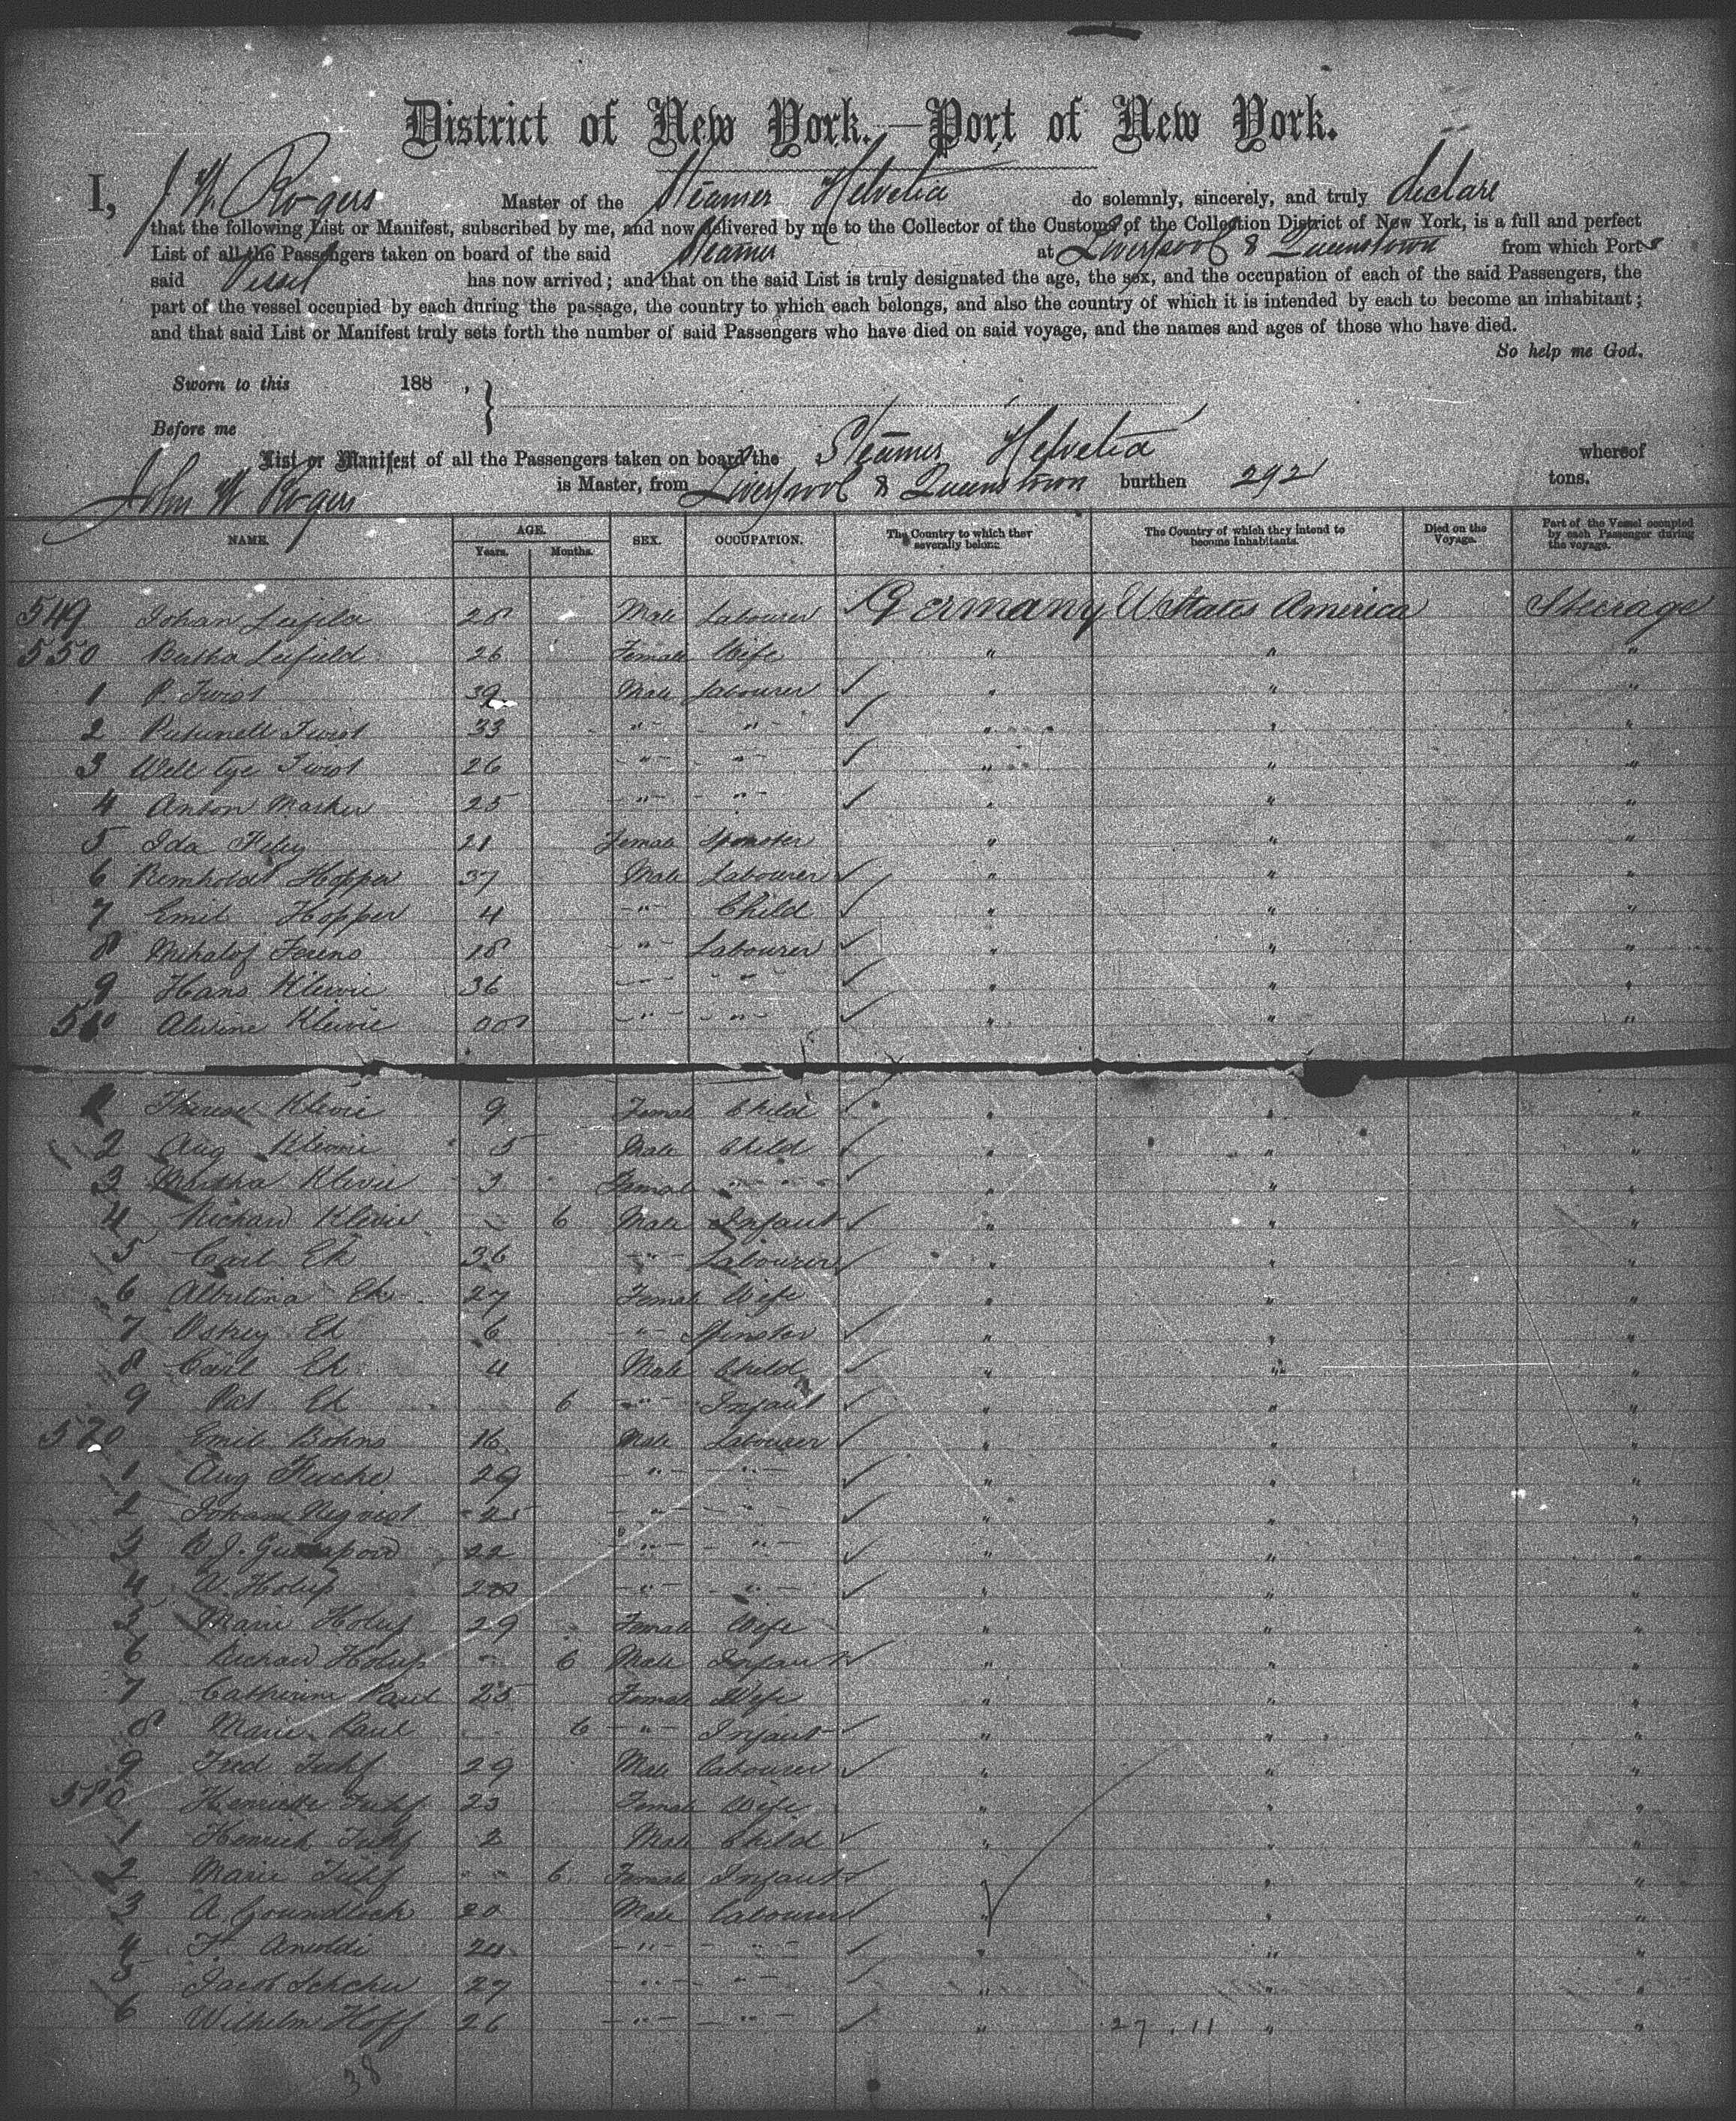 District of New York.—Port of New York.
I, J W Rogers Master of the Steamer Helvetia do solemnly, sincerely, and truly declare
that the following List or Manifest, subscribed by me, and now delivered by me to the Collector of the Customs of the Collection District of New York, is a full and perfect
List of all the Passengers taken on board of the said Steamer at Liverpool & Queenstown from which Ports
said Vessel has now arrived; and that on the said List is truly designated the age, the sex, and the occupation of each of the said Passengers, the
part of the vessel occupied by each during the passage, the country to which each belongs, and also the country of which it is intended by each to become an inhabitant;
and that said List or Manifest truly sets forth the number of said Passengers who have died on said voyage, and the names and ages of those who have died.
So help me God.
Sworn to this 188 ,
Before me
List or Manifest of all the Passengers taken on board the Steamer Helvetia whereof
John W Rogers is Master, from Liverpool & Queenstown burthen 292 tons.
NAME. AGE. Years. Months. SEX. OCCUPATION. The Country to which they severally belong. The Country of which they intend to become Inhabitants. Died on the Voyage. Part of the Vessel occupied by each Passenger during the voyage.
549 Johan 28 Male Labourer Germany U States America Steerage
550 Bertha Leifield 26 Female Wife " " "
1 P. Twist 39 Male Labourer " " "
2 Twist 33 " " " " "
3 Twist 26 " " " " "
4 Anton 25 " " " " "
5 Ida 21 Female Spinster " " "
6 Hopper 37 Male Labourer " " "
7 Emil Hopper 4 " Child " " "
8 18 " Labourer " " "
9 Hans Klewie 36 " " " " "
560 Alwine Klewie " " " " "
1 Klewie 9 Female Child " " "
2 Aug Klewie 5 Male Child " " "
3 Martha Klewie 3 Female " " " "
4 Richard Klewie - 6 Male Infant " " "
5 Carl Ek 36 " Labourer " " "
6 Albertina Ek 27 Female Wife " " "
7 Ek 6 " Spinster " " "
8 Carl Ek 4 Male Child " " "
9 Ek 6 " Infant " " "
570 Emil Bohns 16 Male Labourer " " "
1 Aug 29 " " " " "
2 Johann 25 " " " " "
3 22 " " " " "
4 A. Holup 28 " " " " "
5 Marie Holup 29 Female Wife " " "
6 Richard Holup - 6 Male Infant " " "
7 Catherine Paul 25 Female Wife " " "
8 Marie Paul 6 " Infant " " "
9 Fred 29 Male Labourer " " "
580 Henriette 23 Female Wife " " "
1 Henrich 2 Male Child " " "
2 Marie 6 Female Infant " " "
3 A. Goundlach 20 Male Labourer " " "
4 F. Arnoldi 24 " " " " "
5 Jacob 27 " " " " "
6 Wilhelm Hoff 26 " " " 27.11 " "
38